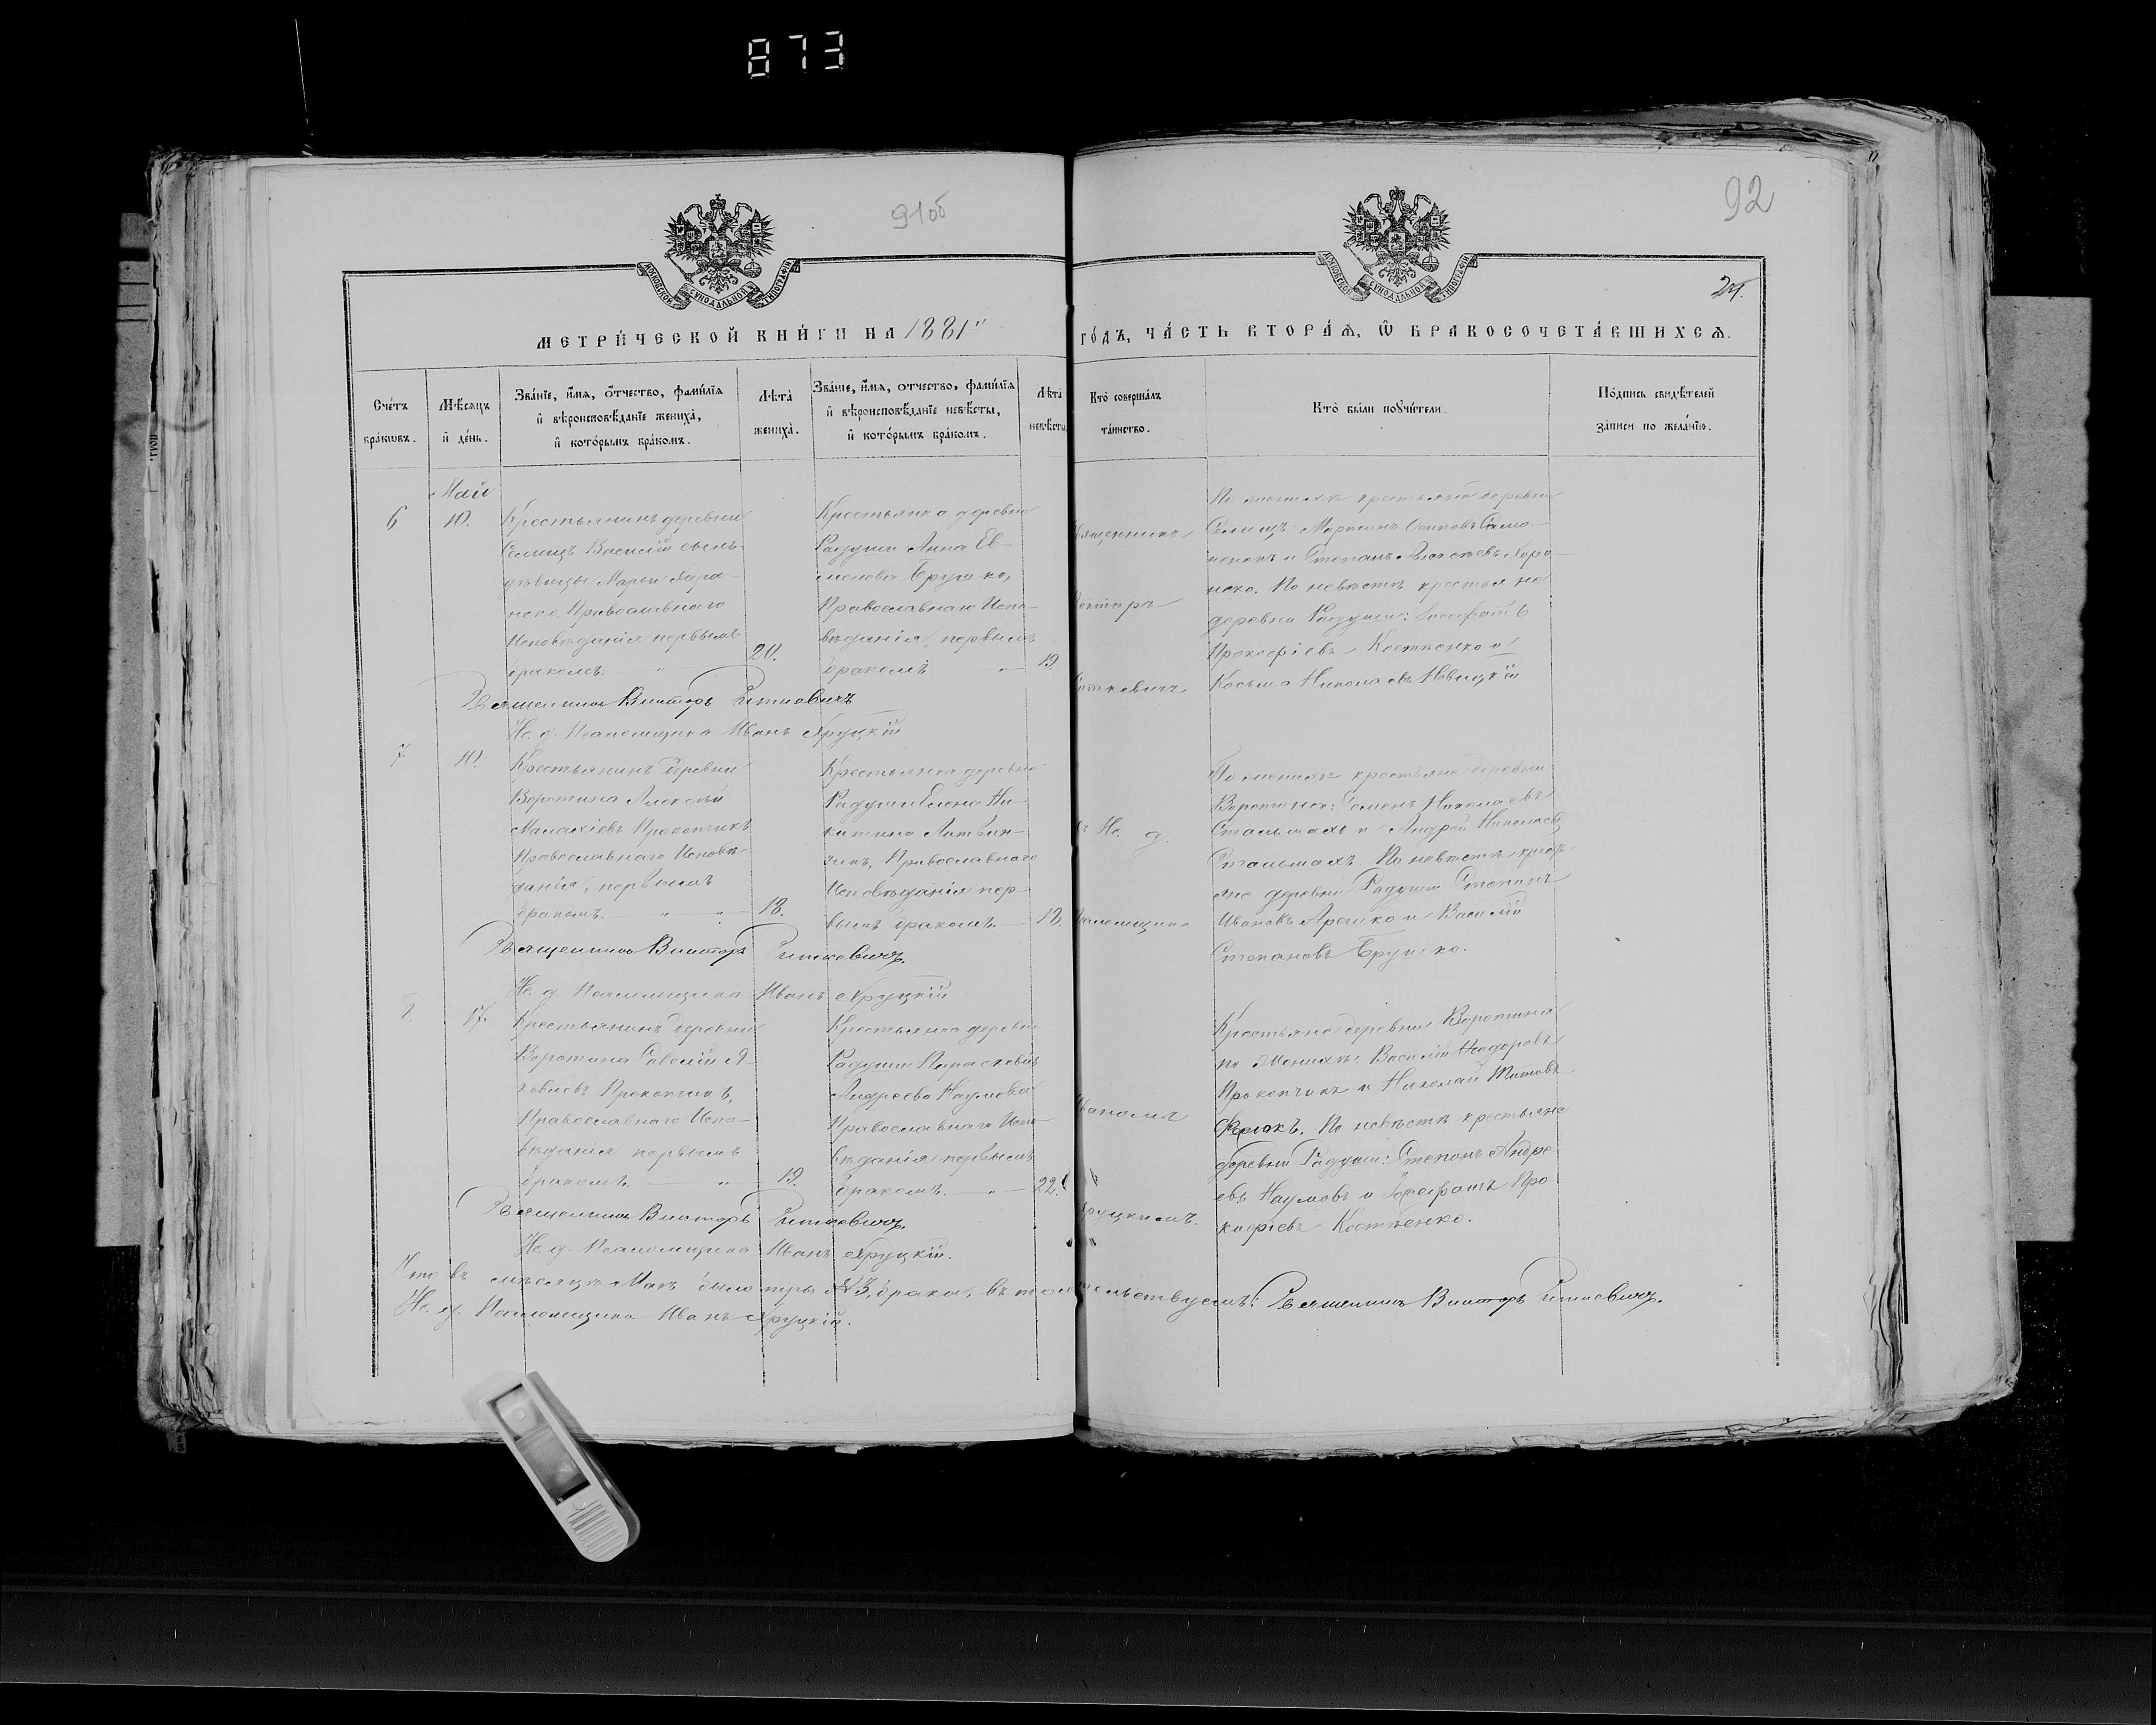 873
91об
92
МОСКОВСКОЙ СѴНОДАЛЬНОЙ ТИПОГРАФІИ
МОСКОВСКОЙ СѴНОДАЛЬНОЙ ТИПОГРАФІИ
24.
МЕТРИ́ЧЕСКОЙ КНИ́ГИ НА 1881"
ГО́ДЪ, ЧА́СТЬ ВТОРА́Ѧ, Ѿ БРАКОСОЧЕТА́ВШИХСѦ.
Сче́тъ
бра́кѡвъ.
Мѣ́сяцъ
и҆ де́нь.
Зва́нїе, и҆́мѧ, ѻ҆́тчество, фами́лїѧ
и҆ вѣроисповѣ́данїе жениха̀,
и҆ кото́рымъ бра́комъ.
Лѣта̀
жениха̀.
Зва́нїе, и҆́мѧ, ѻ҆тчество, фами́лїѧ
и҆ вѣроисповѣ́данїе невѣ́сты,
и҆ кото́рымъ бра́комъ.
Лѣта̀
невѣ́сты
Кто̀ соверша́лъ
та́инство.
Кто̀ бы́ли порꙋчи́тели.
По́дпись свидѣ́телей
за́писи по жела́нїю.
Май
6
10.
Крестьянинъ деревни
Селищъ Василій сынъ
дѣвицы Марьи Хара-
неко, Православнаго
Исповѣданія первымъ
бракомъ. — " —
20.
Крестьянка деревни
Радуши Анна Ев-
менова Брушко,
Православнаго Испо-
вѣданія, первымъ
бракомъ. " —
19.
Священникъ
Викторъ
Ситкевичъ
По женихѣ крестьяне деревни
Селищъ: Мартинъ Осиповъ
и Степанъ Алексѣевъ
По невѣстѣ крестьяне
деревни Радуши: Іосафатъ
Прокофіевъ Костюенко и
Косьма Николаевъ Невицкій
Священникъ Викторъ Ситкевичъ
Ис. д. Псаломщика Иванъ Хруцкій
7.
10.
Крестьянинъ деревни
Воротина Алексѣй
Малахіевъ Прокопчикъ
Православнаго Исповѣ-
данія, первымъ
бракомъ. — " — " —
18.
Крестьянка деревни
Радуши Елена Ни-
китина Литвин-
чикъ, Православнаго
Исповѣданія пер-
вымъ бракомъ. —
18.
съ Ис. д.
Псаломщика
По женихѣ крестьяне деревни
Воротина: Семенъ Николаевъ
Стальмахъ и Андрей Николаевъ
Стальмахъ. По невѣстѣ кресть-
яне деревни Радуши Степанъ
Ивановъ и Василій
Степановъ Брушко.
Священникъ Викторъ Ситкевичъ.
Ис. д. Псаломщика Иванъ Хруцкій
8.
17.
Крестьянинъ деревни
Воротина Савелій Я-
ковлевъ Прокопчикъ,
Православнаго Испо-
вѣданія первымъ
бракомъ. — " —
19.
Крестьянка деревни
Радуши Параскева
Андреева Наумова
Православнаго Испо-
вѣданія первымъ
бракомъ. — " —
22.
Иваномъ
Хруцкимъ.
Крестьяне деревни Воротина
по Женихѣ: Василій Ѳеодоровъ
Прокопчикъ и Николай Титовъ
По невѣстѣ крестьяне
деревни Радуши: Степанъ Андре-
евъ Наумовъ и Іосафатъ Про-
кофіевъ Костюенко.
Священникъ Викторъ Ситкевичъ.
Ис. д. Псаломщика Иванъ Хруцкій.
Что въ мѣсяцѣ Маѣ было три № 3, брака, въ томъ свидѣтельствуемъ: Священникъ Викторъ Ситкевичъ.
Ис. д. Псаломщика Иванъ Хруцкій.